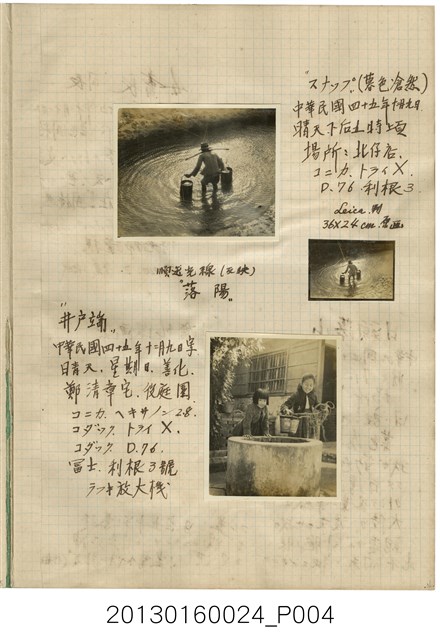 "スナップ"(暮色滄然)
中華民國四十五年十月九日
晴天下后五時頃
場所:北仔店.
コニカ.トライX.
D.76.利根3.
Leica.判
36X24.cm.原画
光線(反映)
"落陽"
"井戸端"
中華民國四十五年十二月九日
日晴天.星期日.善化.
鄭清章宅.後庭園.
コニカ.ヘキサノン2.8.
コダック.トライX.
コダック.D.76.
冨士.利根3號
ラッキ放大機
20130160024_P004